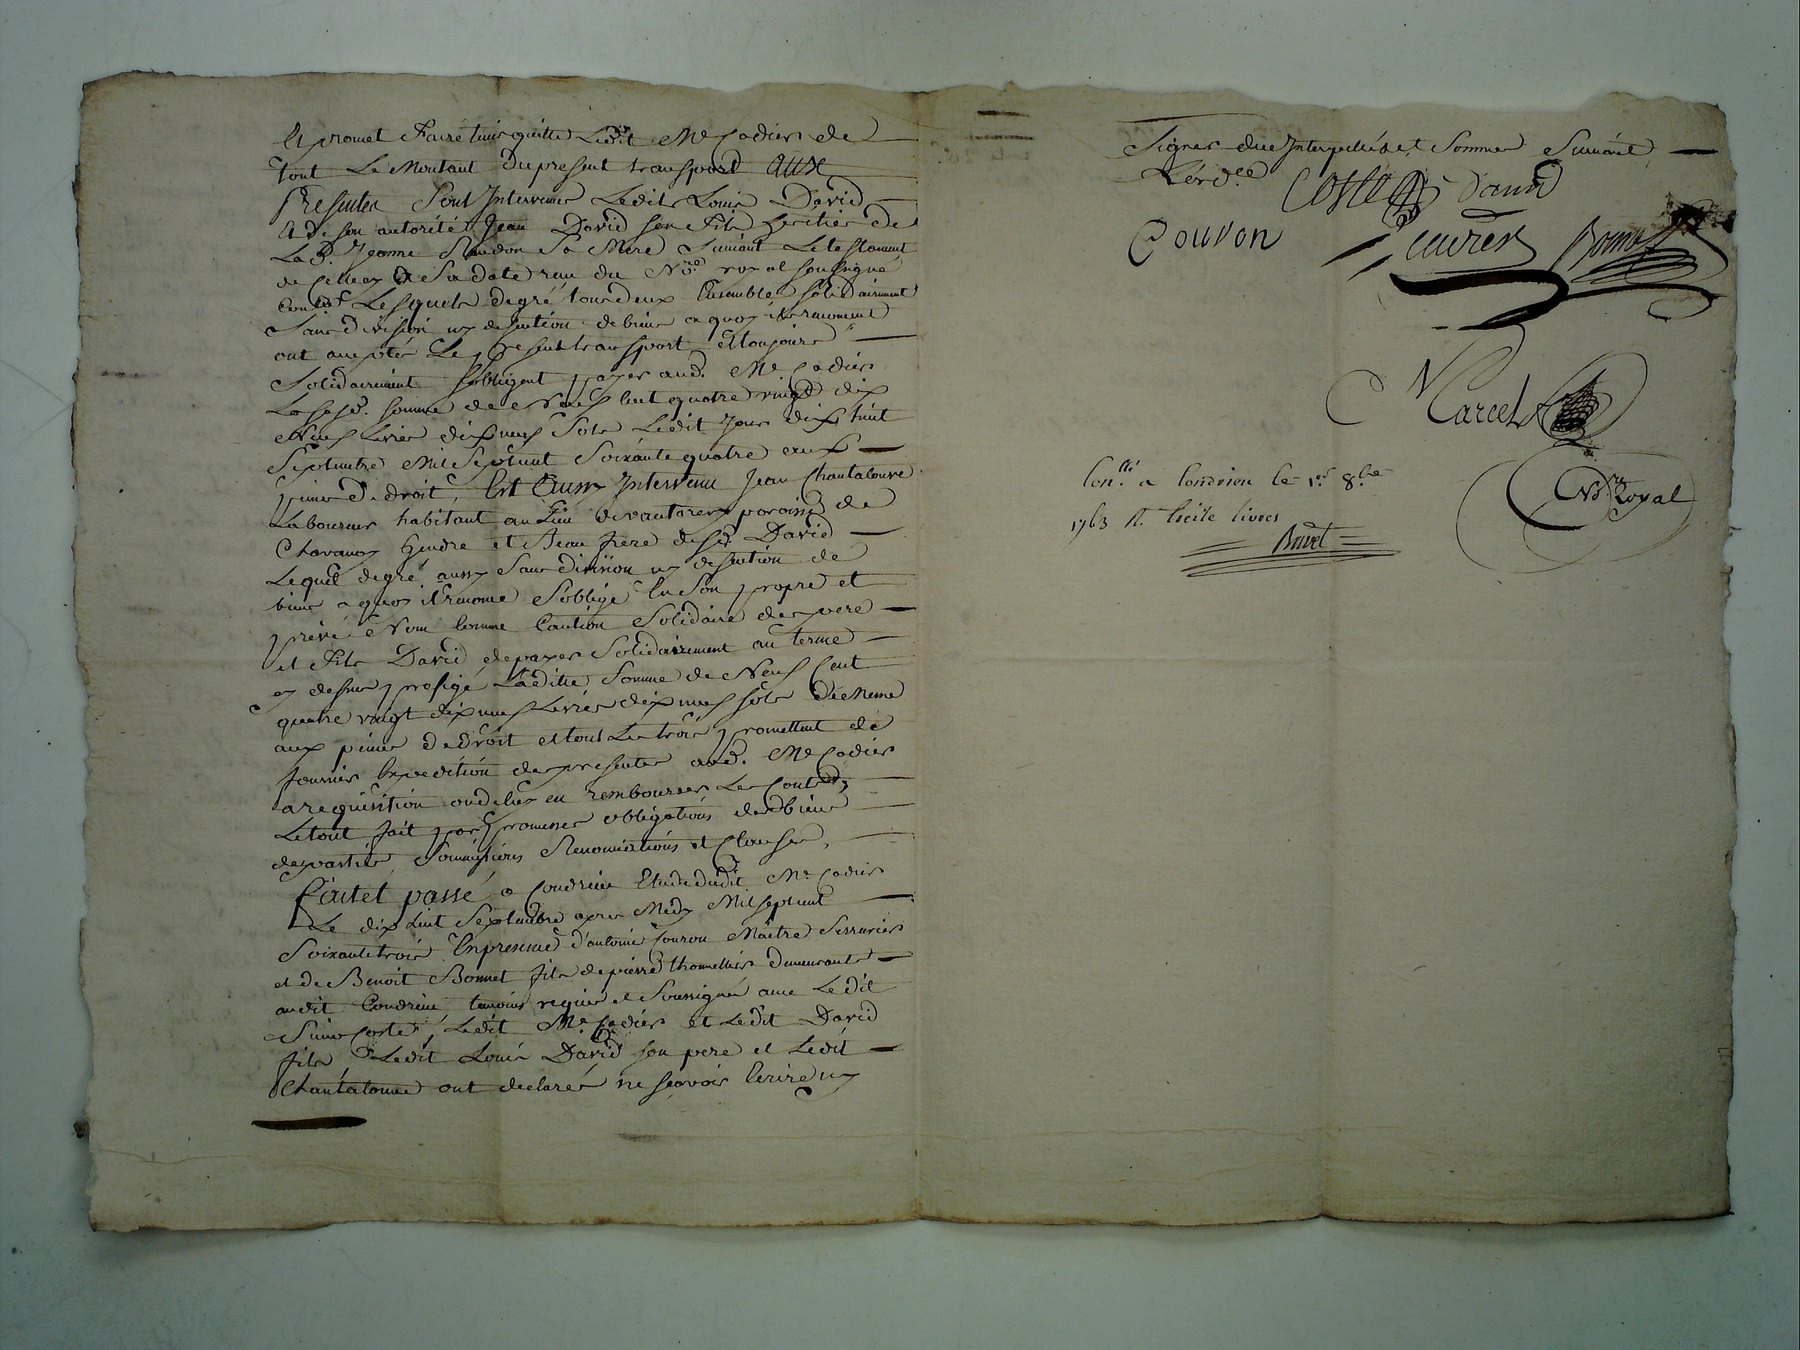 Et promet faire tenir quitte Ledit Me Cadier de
tout Le Montant du present transport aux
Presentes Sont Intervenus Ledit Louis David
& de son autorité Jean David son Fils heritier de
La D. Jeanne Sa Mere Suivant Le testament
de Sa date reçu du No.re royal soussigné
Lesquels de gré tous deux Ensemble solidairement
Sans division ny discution de biens a quoy ils renoncent
ont accepté Le present transport et toujours
Solidairement s'obligent payer aud. Me Cadier
La susd. somme de Neuf Cent quatre vingt dix
Neuf Livres dix neuf Sols Ledit Jour dix huit
Septembre Mil Sept cent Soixante quatre aux
peines de droit, Est Aussy Intervenu Jean Chantalouve
Laboureur habitant au Lieu de paroisse de
Chavanay Gendre et Beau frere desd. David
Lequel de gré aussy Sans division ny discution de
biens a quoy il renonce s'oblige En Son propre et
privé Nom Comme Caution Solidaire des pere
et Fils David de payer Solidairement au terme
cy dessus prefigé Laditte Somme de Neuf Cent
quatre vingt dix neuf Livres dix neuf sols de Meme
aux peines de droit et tous Les trois promettent de
fournir Expedition des presentes aud. Me Cadier
a requisition ou d'en rembourser Les Couts
Le tout fait par promesses obligations des biens
des parties, Soumissions Renonciations et Clauses,
Fait et passé, a Condrieu Etude dudit Me Cadier
Le dix huit Septembre apres Midy Mil sept cent
Soixante trois En presence d'antoine Couron Maitre Serrurier
et de Benoit Bonnet fils de pierre thonnellier demeurants
audit Condrieu temoins requis et Soussignés avec Ledit
Sieur Coste, Ledit Me Cadier et Ledit David
fils & Ledit Louis David son pere et Ledit
Chantalouve ont declarés ne sçavoir Ecrire ny
Signer due Interpellés et Sommés Suivant
L'ord.ce
Coste David
Couron Bonnet
Marcel
No.re Royal
Con.lé a Condrieu le 1.er 8.bre
1763 R. treize livres